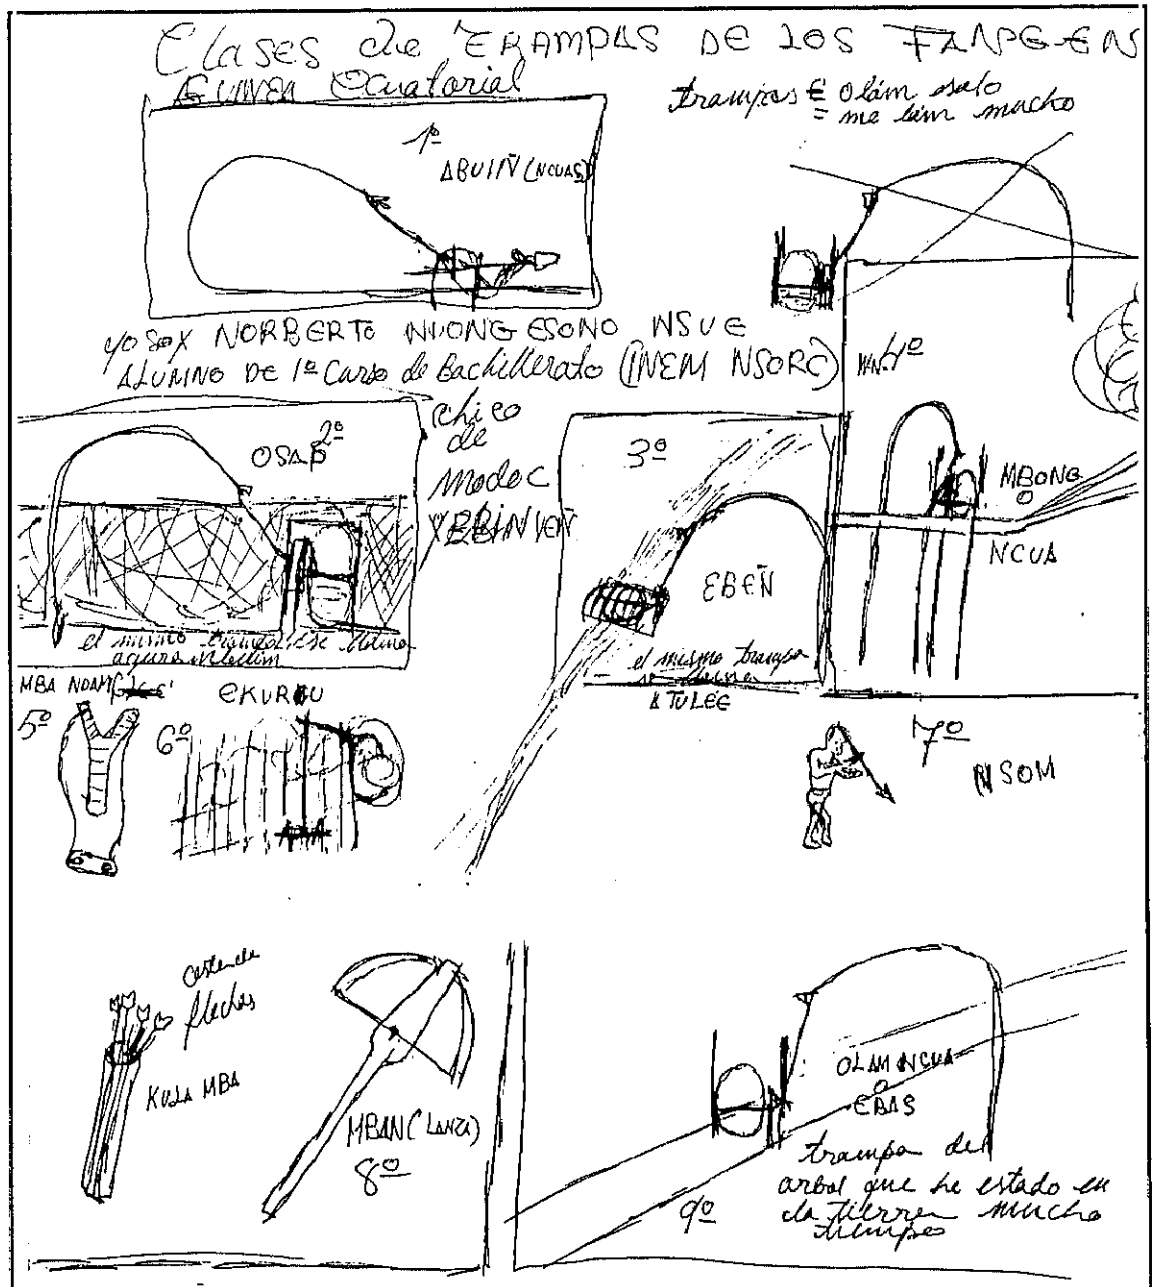 Clases de TRAMPAS DE LOS FANG-EN
GUINEA Ecuatorial
trampas € Olám osalo
= me lám mucho
1º
ABUIÑ (NCUAS)
YO SOY NORBERTO NUONG ESONO NSUE
ALUMNO DE 1º Curso de Bachillerato (INEM NSORC)
4º
chico
de
Modoc
2º
OSAB
3º
MBONG
O
NCUA
EBEÑ
el mismo trampa se llama
el mismo trampa
se llama
ATULEE
MBA NDAM
5º
EKURBU
6º
7º
NSOM
flechas
KULA MBA
MBAN (LANZA)
8º
OLAM NCUA
O
EBAS
trampa del
arbol que he estado en
la tierra mucho
tiempo
9º